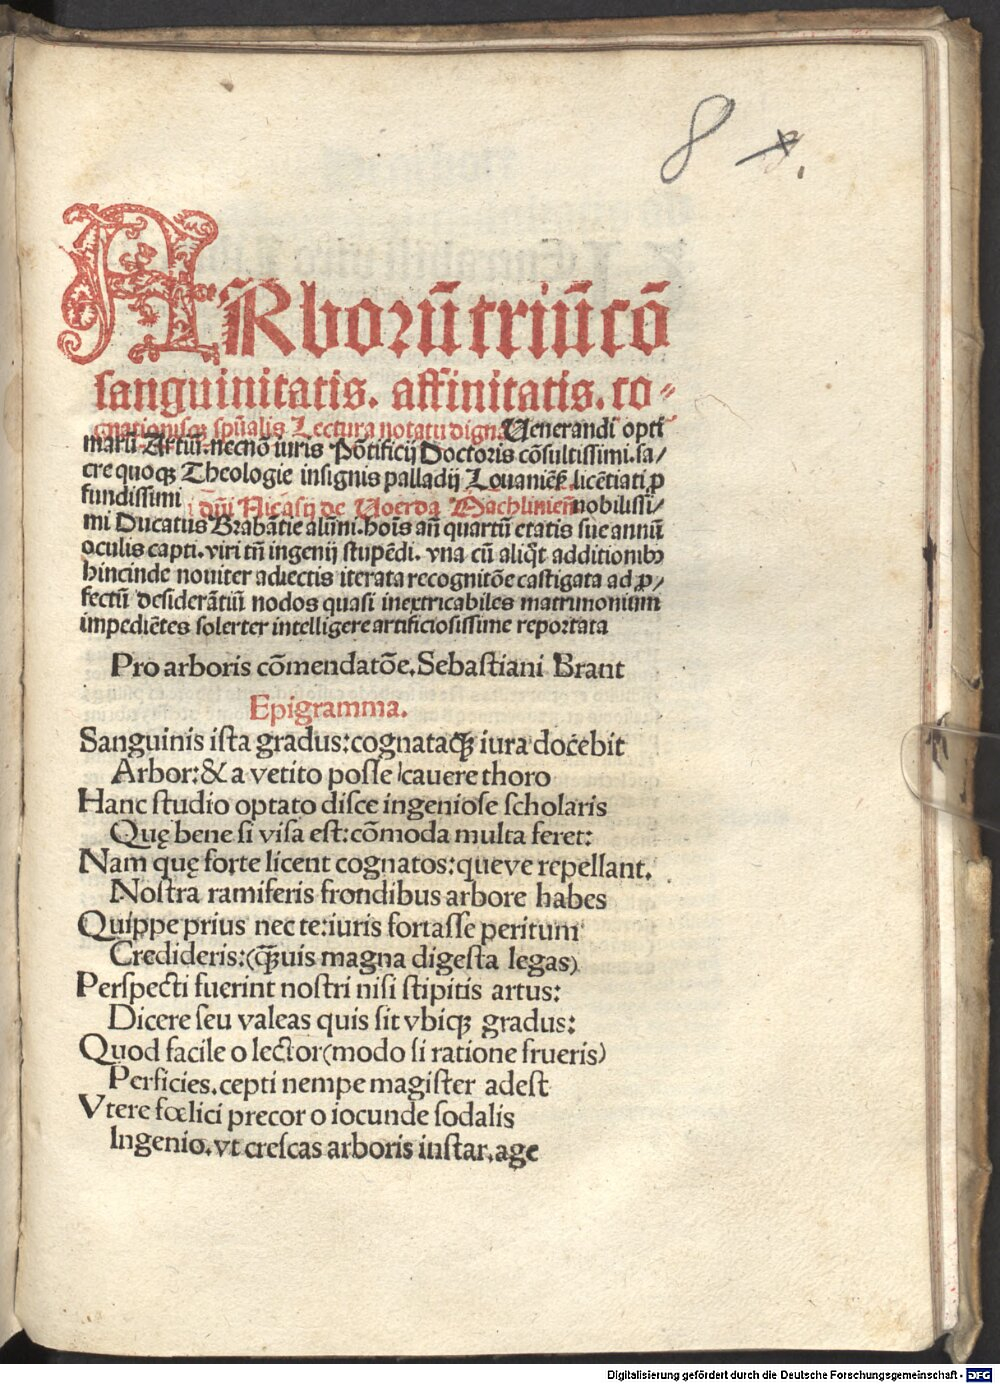 8 x.
ARborū triū cō
sanguinitatis. affinitatis. co⸗
gnationisqꝫ spūalis Lectura notatu digna Venerandi opti
marū Artiū. necnō iuris Pōtificij Doctoris cōsultissimi. sa/
cre quoqꝫ Theologie insignis palladij Louaniēß. licētiati ꝓ
fundissimi dn̄i Nicasij de Voerda Machlinieñ nobilissi/
mi Ducatus Brabātie alūni. hoīs añ quartū etatis sue annū
oculis capti. viri tñ ingenij stupēdi. vna cū aliq̄t additionibꝫ
hincinde nouiter adiectis iterata recognitōe castigata ad ꝓ/
fectū desiderātiū nodos quasi inextricabiles matrimonium
impediētes solerter intelligere artificiosissime reportata
Pro arboris cōmendatōe. Sebastiani Brant
Epigramma.
Sanguinis ista gradus: cognataqꝫ iura docebit
Arbor: & a vetito posse cauere thoro
Hanc studio optato disce ingeniose scholaris
Quę bene si visa est: cōmoda multa feret:
Nam quę forte licent cognatos: queve repellant.
Nostra ramiferis frondibus arbore habes
Quippe prius nec te: iuris fortasse peritum
Credideris: (qꝫuis magna digesta legas)
Perspecti fuerint nostri nisi stipitis artus:
Dicere seu valeas quis sit vbiqꝫ gradus:
Quod facile o lector (modo si ratione frueris)
Perficies. cepti nempe magister adest
Vtere fœlici precor o iocunde sodalis
Ingenio. vt crescas arboris instar. age
Digitalisierung gefördert durch die Deutsche Forschungsgemeinschaft - DFG